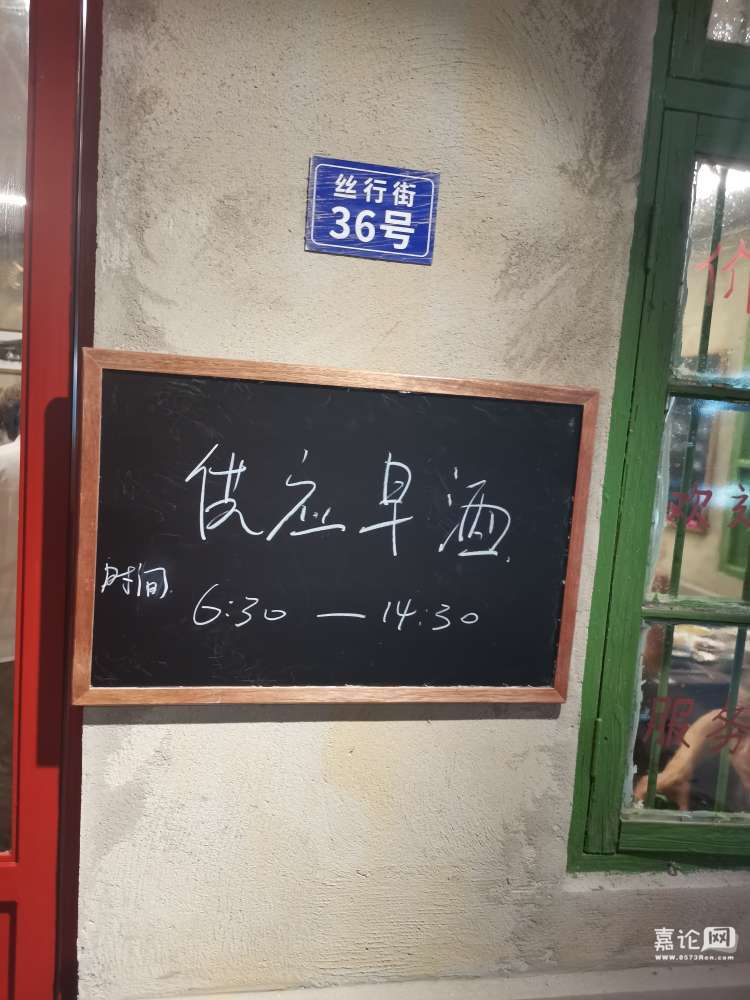 丝行街
36号
供应早酒
时间
6:30 — 14:30
服务
嘉论网
www.0573Ren.com